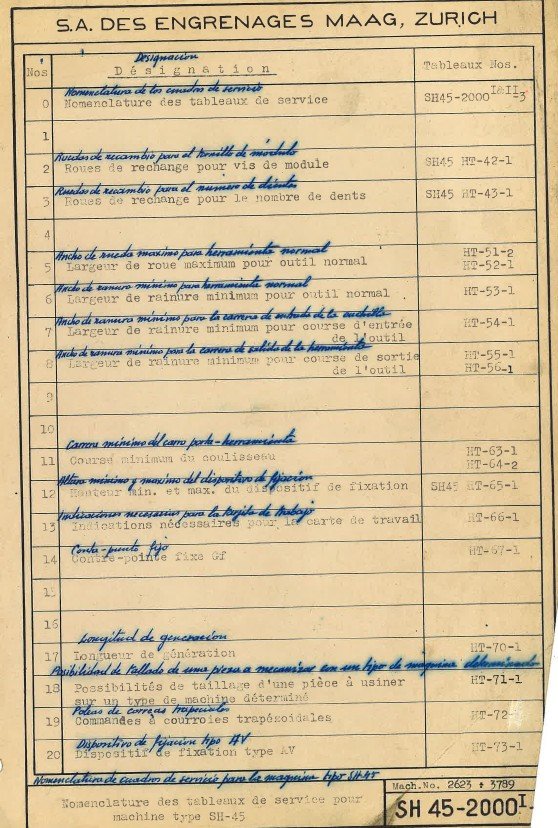 S.A. DES ENGRENAGES MAAG, ZURICH
Designacion
Nos Désignation Tableaux Nos.
Nomenclatura de los cuadros de servicio
0 Nomenclature des tableaux de service SH45-2000 I&II-3
1
Ruedas de recambio para el tornillo de módulo
2 Roues de rechange pour vis de module SH45 HT-42-1
Ruedas de recambio para el numero de dientes
3 Roues de rechange pour le nombre de dents SH45 HT-43-1
4
Ancho de rueda maximo para herramienta normal
HT-51-2
5 Largeur de roue maximum pour outil normal HT-52-1
Ancho de ranura minimo para herramienta normal
6 Largeur de rainure minimum pour outil normal HT-53-1
Ancho de ranura minimo para la carrera de entrada de la cuchilla
7 Largeur de rainure minimum pour course d'entrée HT-54-1
de l'outil
Ancho de ranura minimo para la carrera de salida de la herramienta
8 Largeur de rainure minimum pour course de sortie HT-55-1
de l'outil HT-56-1
9
10
Carrera minimo del carro porta-herramienta
HT-63-1
11 Course minimum du coulisseau HT-64-2
Altura minimo y maximo del dispositivo de fijacion
12 Hauteur min. et max. du dispositif de fixation SH45 HT-65-1
Indicaciones necesarias para la tarjeta de trabajo
13 Indications nécessaires pour la carte de travail HT-66-1
Contra-punto fijo
14 Contre-pointe fixe Gf HT-67-1
15
16
Longitud de generacion
17 Longueur de génération HT-70-1
Posibilidad de tallado de una pieza a mecanizar con un tipo de maquina determinado
18 Possibilités de taillage d'une pièce à usiner HT-71-1
sur un type de machine déterminé
Poleas de correas trapeciales
19 Commandes à courroies trapézoidales HT-72
Dispositivo de fijacion tipo AV
20 Dispositif de fixation type AV HT-73-1
Nomenclatura de cuadros de servicio para la maquina tipo SH-45
Nomenclature des tableaux de service pour
machine type SH-45
Mach.No. 2623 + 3789
SH 45-2000 I